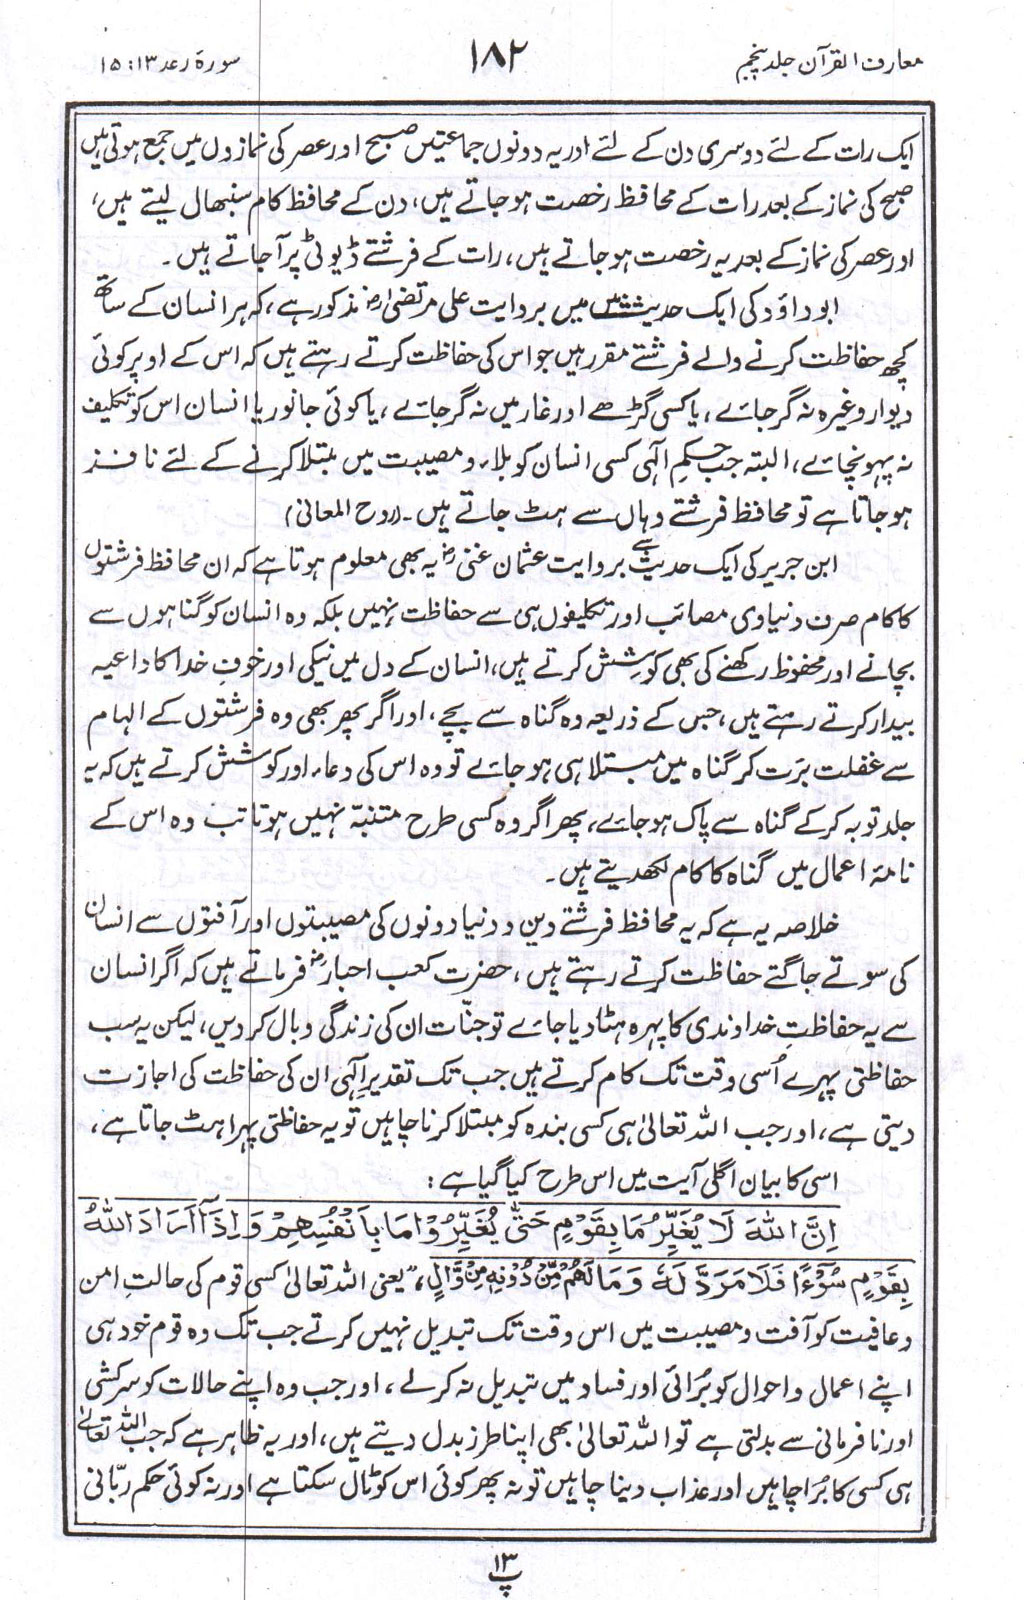 معارف القرآن جلد پنجم
۱۸۲
سورۂ رعد ۱۳: ۱۵
ایک رات کے لئے دوسری دن کے لئے اور یہ دونوں جماعتیں صبح اور عصر کی نمازوں میں جمع ہوتی ہیں
صبح کی نماز کے بعد رات کے محافظ رخصت ہو جاتے ہیں، دن کے محافظ کام سنبھال لیتے ہیں،
اور عصر کی نماز کے بعد یہ رخصت ہو جاتے ہیں، رات کے فرشتے ڈیوٹی پر آ جاتے ہیں۔
ابو داؤد کی ایک حدیث میں بروایت علی مرتضیٰؓ مذکور ہے، کہ ہر انسان کے ساتھ
کچھ حفاظت کرنے والے فرشتے مقرر ہیں جو اس کی حفاظت کرتے رہتے ہیں کہ اس کے اوپر کوئی
دیوار وغیرہ نہ گر جائے، یا کسی گڑھے اور غار میں نہ گر جائے، یا کوئی جانور یا انسان اس کو تکلیف
نہ پہونچائے، البتہ جب حکمِ الٰہی کسی انسان کو بلاء و مصیبت میں مبتلا کرنے کے لئے نافذ
ہو جاتا ہے تو محافظ فرشتے وہاں سے ہٹ جاتے ہیں۔ (روح المعانی)
ابن جریر کی ایک حدیث سے بروایت عثمان غنیؓ یہ بھی معلوم ہوتا ہے کہ ان محافظ فرشتوں
کا کام صرف دنیاوی مصائب اور تکلیفوں ہی سے حفاظت نہیں بلکہ وہ انسان کو گناہوں سے
بچانے اور محفوظ رکھنے کی بھی کوشش کرتے ہیں، انسان کے دل میں نیکی اور خوفِ خدا کا داعیہ
بیدار کرتے رہتے ہیں، جس کے ذریعہ وہ گناہ سے بچے، اور اگر پھر بھی وہ فرشتوں کے الہام
سے غفلت برَت کر گناہ میں مبتلا ہی ہو جائے تو وہ اس کی دعاء اور کوشش کرتے ہیں کہ یہ
جلد توبہ کر کے گناہ سے پاک ہو جائے، پھر اگر وہ کسی طرح متنبّہ نہیں ہوتا تب وہ اس کے
نامۂ اعمال میں گناہ کا کام لکھدیتے ہیں۔
خلاصہ یہ ہے کہ یہ محافظ فرشتے دین و دنیا دونوں کی مصیبتوں اور آفتوں سے انسان
کی سوتے جاگتے حفاظت کرتے رہتے ہیں، حضرت کعب احبارؓ فرماتے ہیں کہ اگر انسان
سے یہ حفاظتِ خداوندی کا پہرہ ہٹا دیا جائے تو جنّات ان کی زندگی وبال کر دیں، لیکن یہ سب
حفاظتی پہرے اُسی وقت تک کام کرتے ہیں جب تک تقدیرِ الٰہی ان کی حفاظت کی اجازت
دیتی ہے، اور جب اللہ تعالیٰ ہی کسی بندہ کو مبتلا کرنا چاہیں تو یہ حفاظتی پہرا ہٹ جاتا ہے،
اسی کا بیان اگلی آیت میں اس طرح کیا گیا ہے:
اِنَّ اللّٰهَ لَا يُغَيِّرُ مَا بِقَوْمٍ حَتّٰى يُغَيِّرُوْا مَا بِاَنْفُسِهِمْ وَاِذَآ اَرَادَ اللّٰهُ
بِقَوْمٍ سُوْٓءًا فَلَا مَرَدَّ لَهٗ وَمَا لَهُمْ مِّنْ دُوْنِهٖ مِنْ وَّالٍ، ”یعنی اللہ تعالیٰ کسی قوم کی حالتِ امن
و عافیت کو آفت و مصیبت میں اس وقت تک تبدیل نہیں کرتے جب تک وہ قوم خود ہی
اپنے اعمال و احوال کو بُرائی اور فساد میں تبدیل نہ کر لے، اور جب وہ اپنے حالات کو سرکشی
اور نافرمانی سے بدلتی ہے تو اللہ تعالیٰ بھی اپنا طرز بدل دیتے ہیں، اور یہ ظاہر ہے کہ جب اللہ تعالیٰ
ہی کسی کا بُرا چاہیں اور عذاب دینا چاہیں تو نہ پھر کوئی اس کو ٹال سکتا ہے اور نہ کوئی حکمِ ربّانی
۱۳
پ